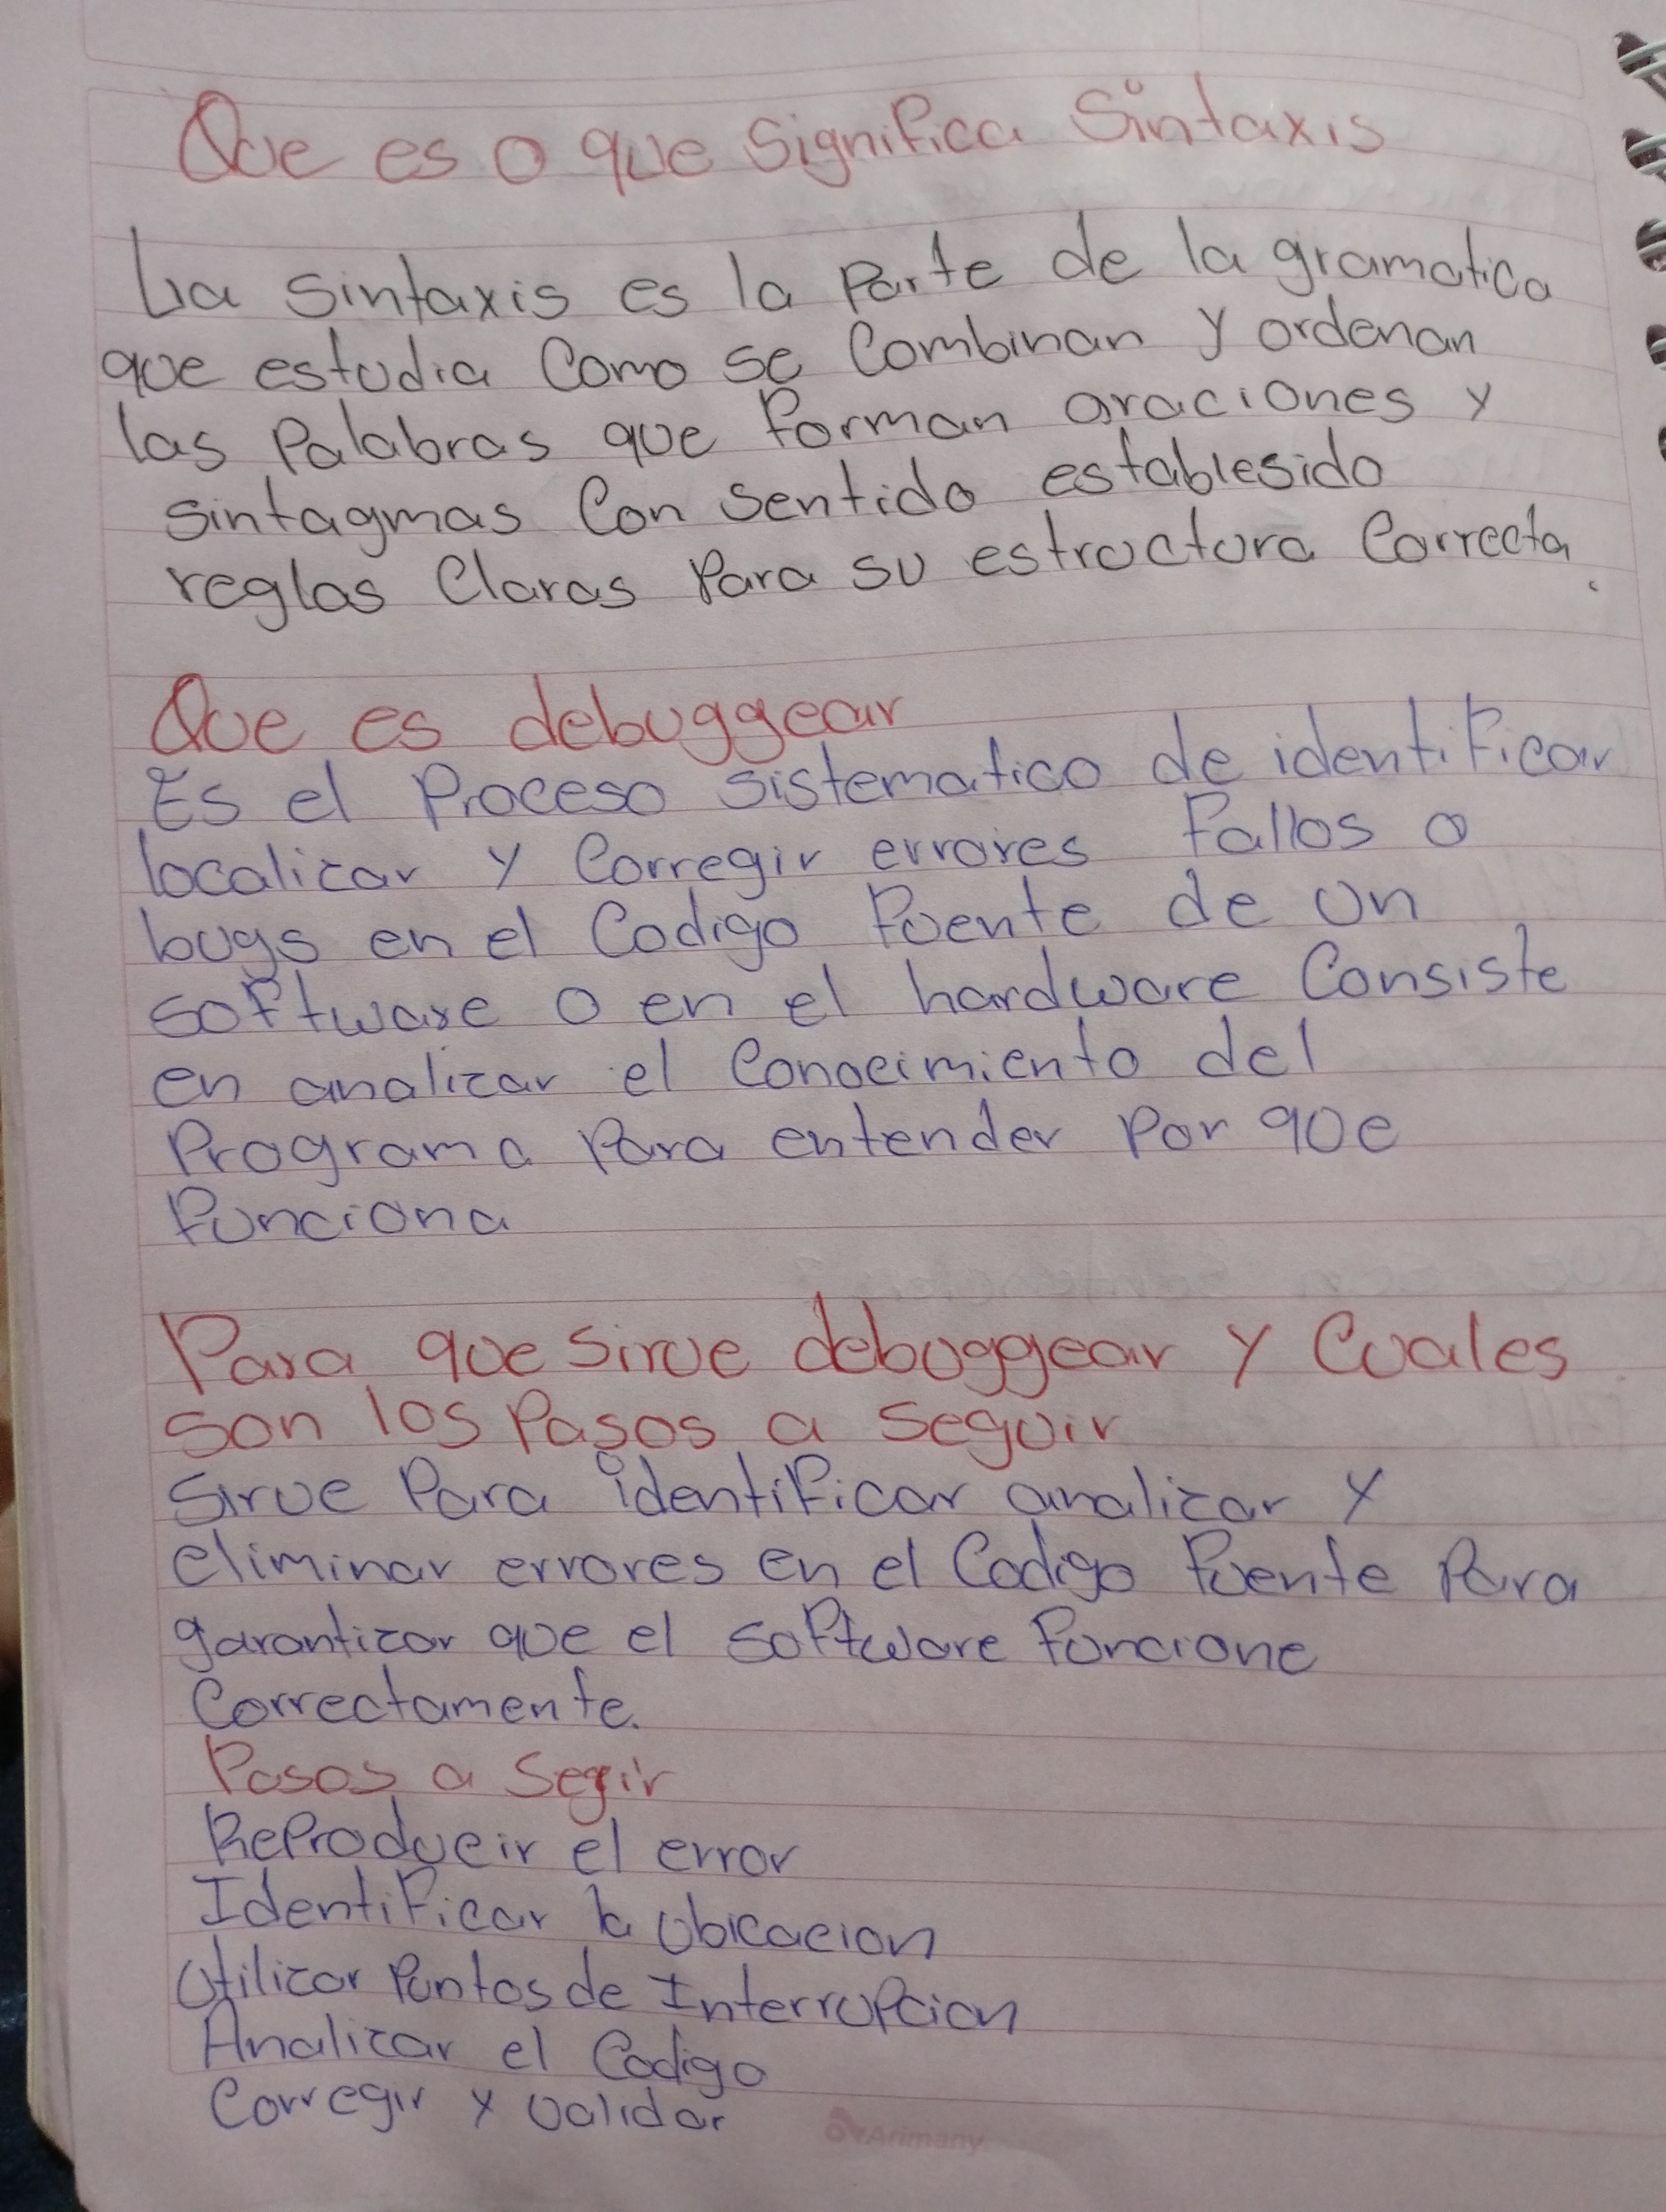 Que es o que significa Sintaxis
La sintaxis es la parte de la gramatica
que estudia como se combinan y ordenan
las palabras que forman oraciones y
sintagmas con sentido establesido
reglas claras para su estructura correcta.
Que es debuggear
Es el proceso sistematico de identificar
localizar y corregir errores fallos o
bugs en el codigo fuente de un
software o en el hardware consiste
en analizar el conocimiento del
programa para entender por que
funciona
Para que sirve debuggear y cuales
son los pasos a seguir
sirve para identificar analizar y
eliminar errores en el codigo fuente para
garantizar que el software funcione
correctamente.
Pasos a Segir
Reproducir el error
Identificar la ubicacion
Utilizar puntos de Interrupcion
Analizar el codigo
Corregir y validar
Arimany